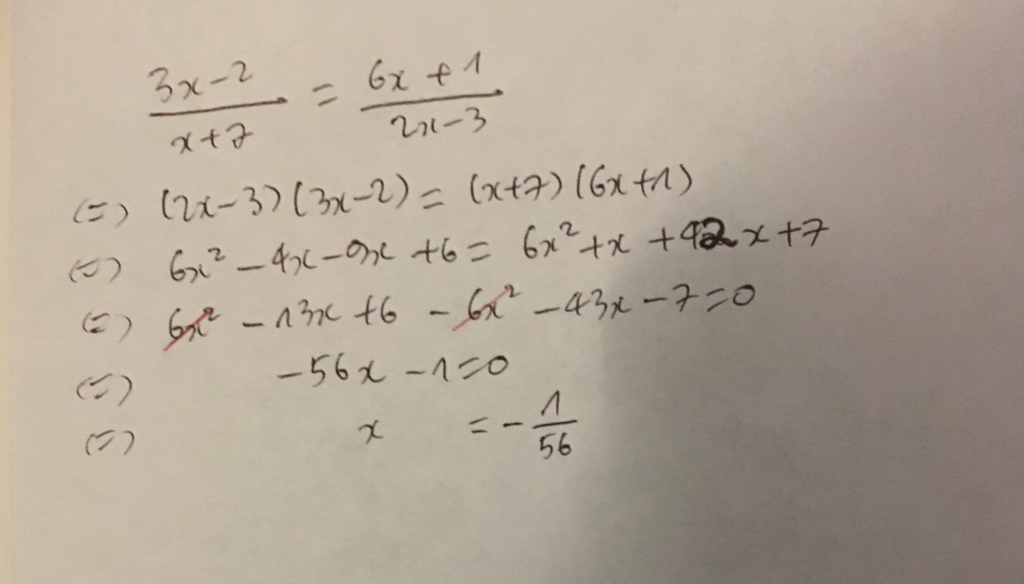 (3x-2)/(x+7) = (6x+1)/(2x-3)
(=) (2x-3)(3x-2) = (x+7)(6x+1)
(=) 6x² - 4x - 9x + 6 = 6x² + x + 42x + 7
(=) 6x² - 13x + 6 - 6x² - 43x - 7 = 0
(=) -56x - 1 = 0
(=) x = - 1/56